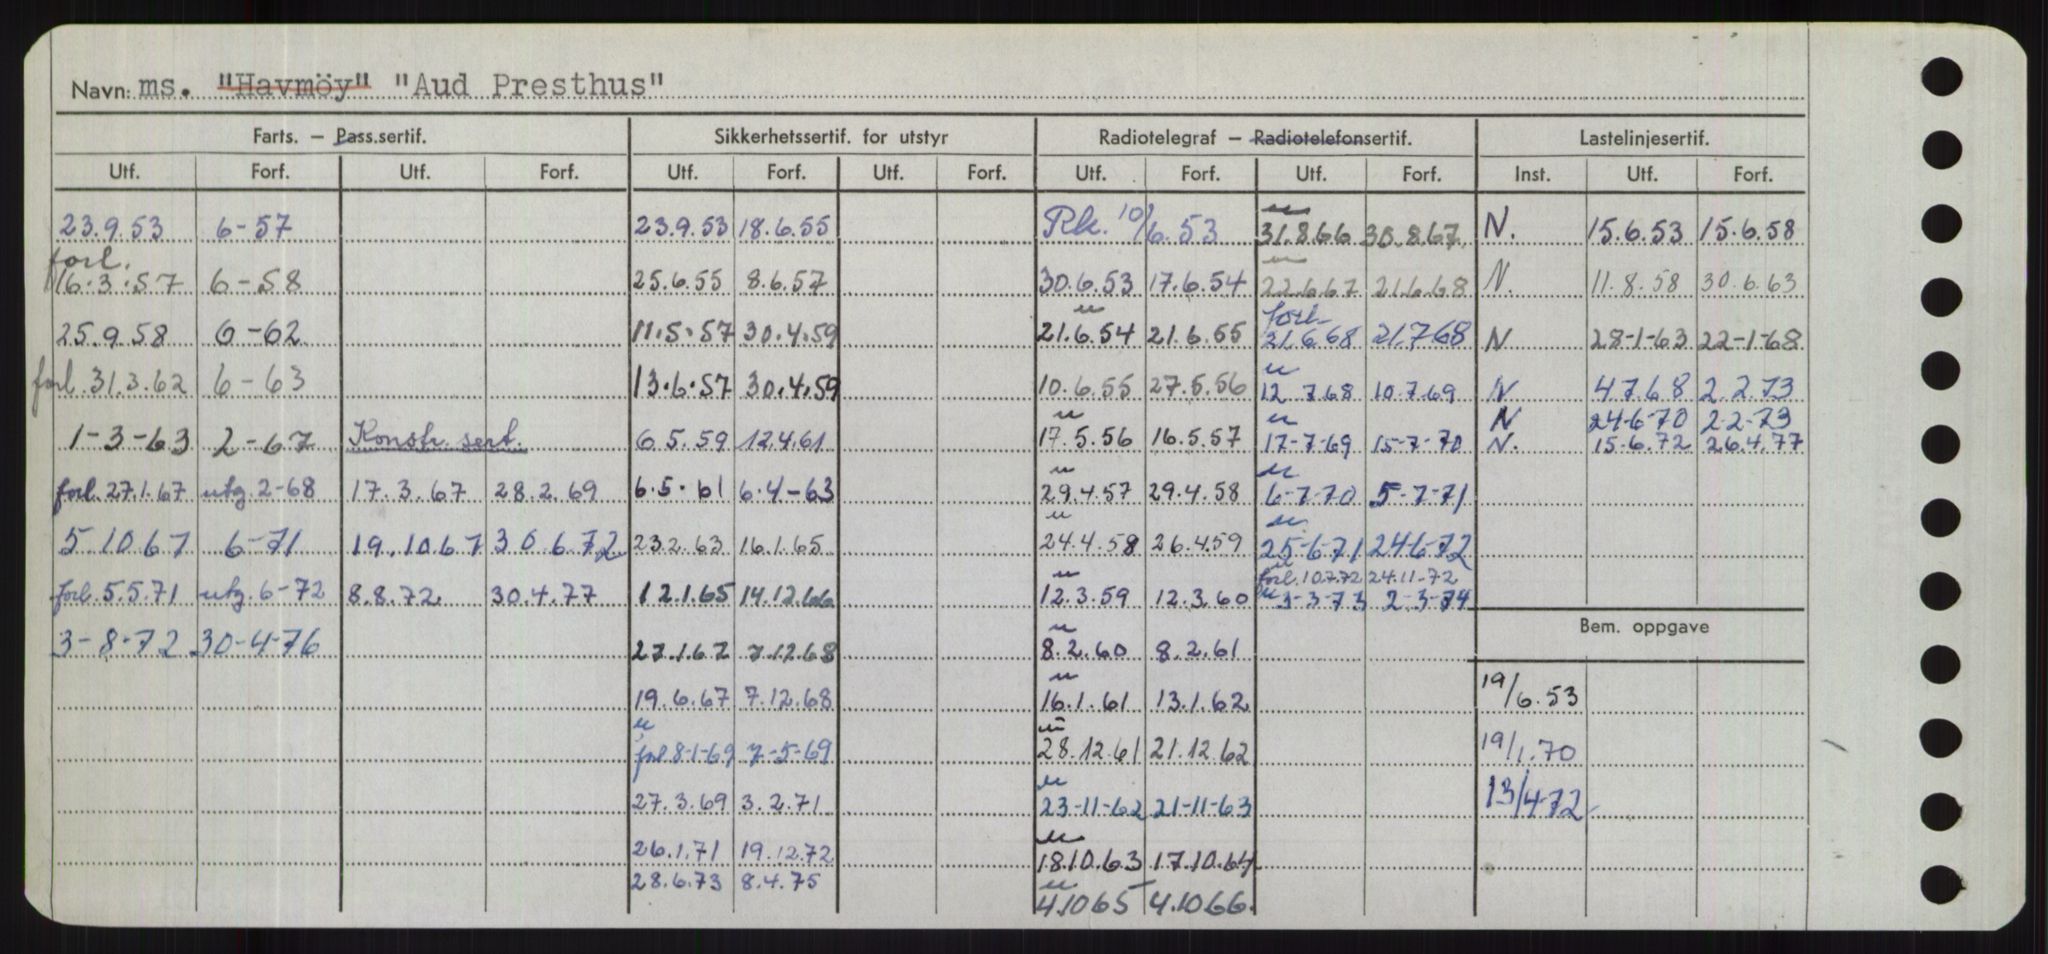 Navn: ms. "Havmöy" "Aud Presthus"
Farts. — Pass.sertif. Sikkerhetssertif. for utstyr Radiotelegraf — Radiotelefonsertif. Lastelinjesertif.
Utf. Forf. Utf. Forf. Utf. Forf. Utf. Forf. Utf. Forf. Utf. Forf. Inst. Utf. Forf.
23.9.53 6-57 23.9.53 18.6.55 Rk. 10/6.53 31.8.66 30.8.67 N. 15.6.53 15.6.58
forl.
16.3.57 6-58 25.6.55 8.6.57 30.6.53 17.6.54 22.6.67 21.6.68 N. 11.8.58 30.6.63
forl.
25.9.58 6-62 11.5.57 30.4.59 21.6.54 21.6.55 21.6.68 21.7.68 N 28-1-63 22-1-68
forl. 31.3.62 6-63 13.6.57 30.4.59 10.6.55 27.5.56 12.7.68 10.7.69 N 4.7.68 2.2.73
N 24-6-70 2.2-73
1-3-63 2-67 Konstr. sert. 6.5.59 12.4.61 17.5.56 16.5.57 17-7-69 15-7-70 N. 15.6.72 26.4.77
forl. 27.1.67 utg. 2-68 17.3.67 28.2.69 6.5.61 6.4-63 29.4.57 29.4.58 6-7-70 5-7-71
5.10.67 6-71 19.10.67 30.6.72 23.2.63 16.1.65 24.4.58 26.4.59 25-6-71 24-6-72
forl. 10.7.72 24.11-72
forl. 5.5.71 utg. 6-72 8.8.72 30.4.77 12.1.65 14.12.66 12.3.59 12.3.60 3-3-73 2-3-74
Bem. oppgave
3-8-72 30-4-76 27.1.67 7.12.68 8.2.60 8.2.61
19.6.67 7.12.68 16.1.61 13.1.62 19/6.53
forl 8-1-69 7-5-69 28.12.61 21.12.62 19/1.70
27.3.69 3.2.71 23-11-62 21-11-63 13/4-72
26.1.71 19.12.72 18.10.63 17.10.64
28.6.73 8.4.75
4.10.65 4.10.66.